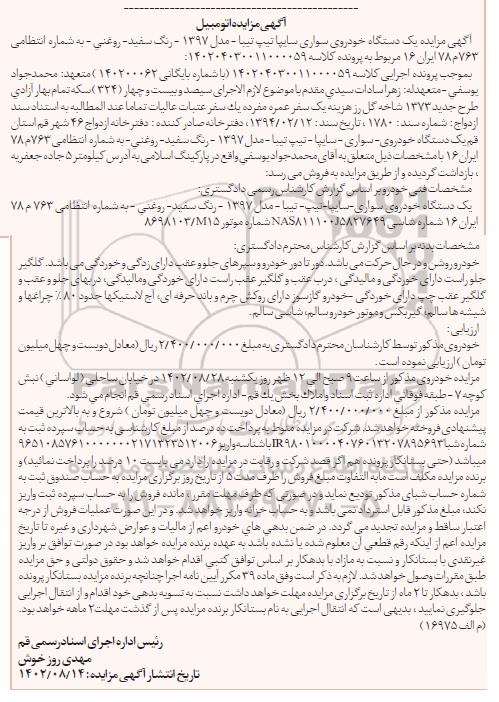 آگهی مزایده اتومبیل
آگهی مزایده یک دستگاه خودروی سواری سایپا تیپ تیبا - مدل ۱۳۹۷ - رنگ سفید- روغنی - به شماره انتظامی
۷۶۳م۷۸ ایران ۱۶ مربوط به پرونده کلاسه ۱۴۰۲۰۴۰۳۰۰۱۱۰۰۰۰۵۹:
بموجب پرونده اجرایی کلاسه ۱۴۰۲۰۴۰۳۰۰۱۱۰۰۰۰۵۹ (با شماره بایگانی ۱۴۰۲۰۰۰۶۲) متعهد: محمدجواد
یوسفی -متعهدله: زهرا سادات سیدی مقدم با موضوع لازم الاجرای سیصد و بیست و چهار (۳۲۴) سکه تمام بهار آزادی
طرح جدید ۱۳۷۳ شاخه گل رز هزینه یک سفر عمره مفرده یک سفر عتبات عالیات تماما عند المطالبه به استناد سند
ازدواج: شماره سند: ۱۷۸۰ ، تاریخ سند: ۱۳۹۴/۰۲/۱۲، دفترخانه صادر کننده : دفترخانه ازدواج ۴۶ شهر قم استان
قم یک دستگاه خودروی- سواری - سایپا - تیپ تیبا - مدل ۱۳۹۷ - رنگ سفید- روغنی- به شماره انتظامی ۷۶۳م۷۸
ایران۱۶ با مشخصات ذیل متعلق به آقای محمدجواد یوسفی واقع در پارکینگ اسلامی به آدرس کیلومتر ۵ جاده جعفریه
، بازداشت گردیده و از طریق مزایده به فروش می رسد:
مشخصات فنی خودرو بر اساس گزارش کارشناس رسمی دادگستری:
یک دستگاه خودروی سواری-سایپا-تیپ- تیبا - مدل ۱۳۹۷ - رنگ سفید- روغنی - به شماره انتظامی ۷۶۳ م ۷۸
ایران ۱۶ شماره شاسی NAS۸۱۱۱۰۰J۵۸۲۷۶۴۹ شماره موتور ۸۶۹۸۱۰۳/M۱۵
مشخصات بدنه بر اساس گزارش کارشناس محترم دادگستری:
خودرو روشن و در حال حرکت می باشد. دور تا دور خودرو و سپرهای جلو و عقب دارای زدگی و خوردگی می باشد. گلگیر
جلو راست دارای خوردگی و مالیدگی ، درب عقب و گلگیر عقب راست دارای خوردگی ومالیدگی، دربهای جلو و عقب و
گلگیر عقب چپ دارای خوردگی -خودرو گازسوز دارای روکش چرم و باند حرفه ای، آج لاستیکها حدود ۸۰٪ چراغها و
شیشه ها سالم، گیربکس و موتور خودرو سالم، شاسی سالم.
ارزیابی:
خودروی مذکور توسط کارشناسان محترم دادگستری به مبلغ ۲/۴۰۰/۰۰۰/۰۰۰ ریال (معادل دویست و چهل میلیون
تومان ) ارزیابی نموده است.
مزایده خودروی مذکور از ساعت ۹ صبح الی ۱۲ ظهر روز یکشنبه ۱۴۰۲/۰۸/۲۸ در خیابان ساحلی (لواسانی) نبش
کوچه ۷ - طبقه فوقانی اداره ثبت اسناد و املاک بخش یک قم - اداره اجرای اسناد رسمی قم انجام می شود.
مزایده مذکور از مبلغ ۲/۴۰۰/۰۰۰/۰۰۰ ریال (معادل دویست و چهل میلیون تومان ) شروع و به بالاترین قیمت
پیشنهادی فروخته خواهد شد. شرکت در مزایده منوط به پرداخت ده درصد از مبلغ کارشناسی به حساب سپرده ثبت به
شماره شبا IR۹۸۰۱۰۰۰۰۴۰۷۶۰۱۳۲۰۷۸۹۵۶۹۳ با شناسه واریز ۹۶۵۱۰۸۵۷۶۱۰۰۰۰۰۰۰۲۱۷۱۲۳۵۱۲۰۰۶
میباشد (حتی بستانکار پرونده هم اگر قصد شرکت و رقابت در مزایده را دارد می بایست ۱۰ درصد را پرداخت نمائید) و
برنده مزایده مکلف است مابه التفاوت مبلغ فروش را ظرف مدت ۵ از تاریخ روز برگزاری مزایده به حساب صندوق ثبت به
شماره حساب شبای مذکور تودیع نماید و در صورتی که ظرف مهلت مقرر، مانده فروش را به حساب سپرده ثبت واریز
نکند، مبلغ مذکور قابل استرداد نمی باشد و به حساب خزانه واریز خواهد شد. و در این صورت عملیات فروش از درجه
اعتبار ساقط و مزایده تجدید می گردد. در ضمن بدهی های خودرو اعم از مالیات و عوارض شهرداری و غیره تا تاریخ
مزایده اعم از اینکه رقم قطعی آن معلوم شده یا نشده باشد به عهده برنده مزایده خواهد بود در صورت توافق بر واریز
غیرنقدی با بستانکار و نسبت به مازاد با بدهکار بر اساس توافق کتبی اقدام خواهد شد و حقوق دولتی و حق مزایده
طبق مقررات وصول خواهد شد. لازم به ذکر است وفق ماده ۳۹ مکرر آیین نامه اجرا چنانچه برنده مزایده بستانکار پرونده
باشد ، بدهکار تا ۲ ماه از تاریخ برگزاری مزایده مهلت خواهد داشت نسبت به تسویه بدهی خود اقدام و از انتقال اجرایی
جلوگیری نمایید ، بدیهی است که انتقال اجرایی به نام بستانکار برنده مزایده پس از گذشت مهلت ۲ ماهه خواهد بود.
(م الف ۱۶۹۷۵)
رئیس اداره اجرای اسناد رسمی قم
مهدی روز خوش
تاریخ انتشار آگهی مزایده: ۱۴۰۲/۰۸/۱۴